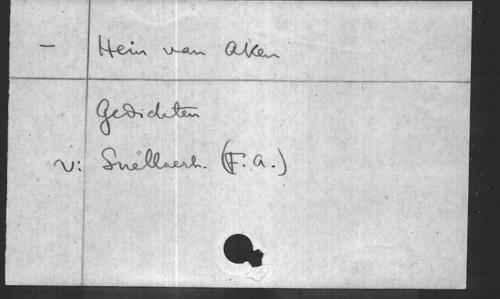 - Hein van Aken
Gedichten
v: Snellaert. (F.A.)